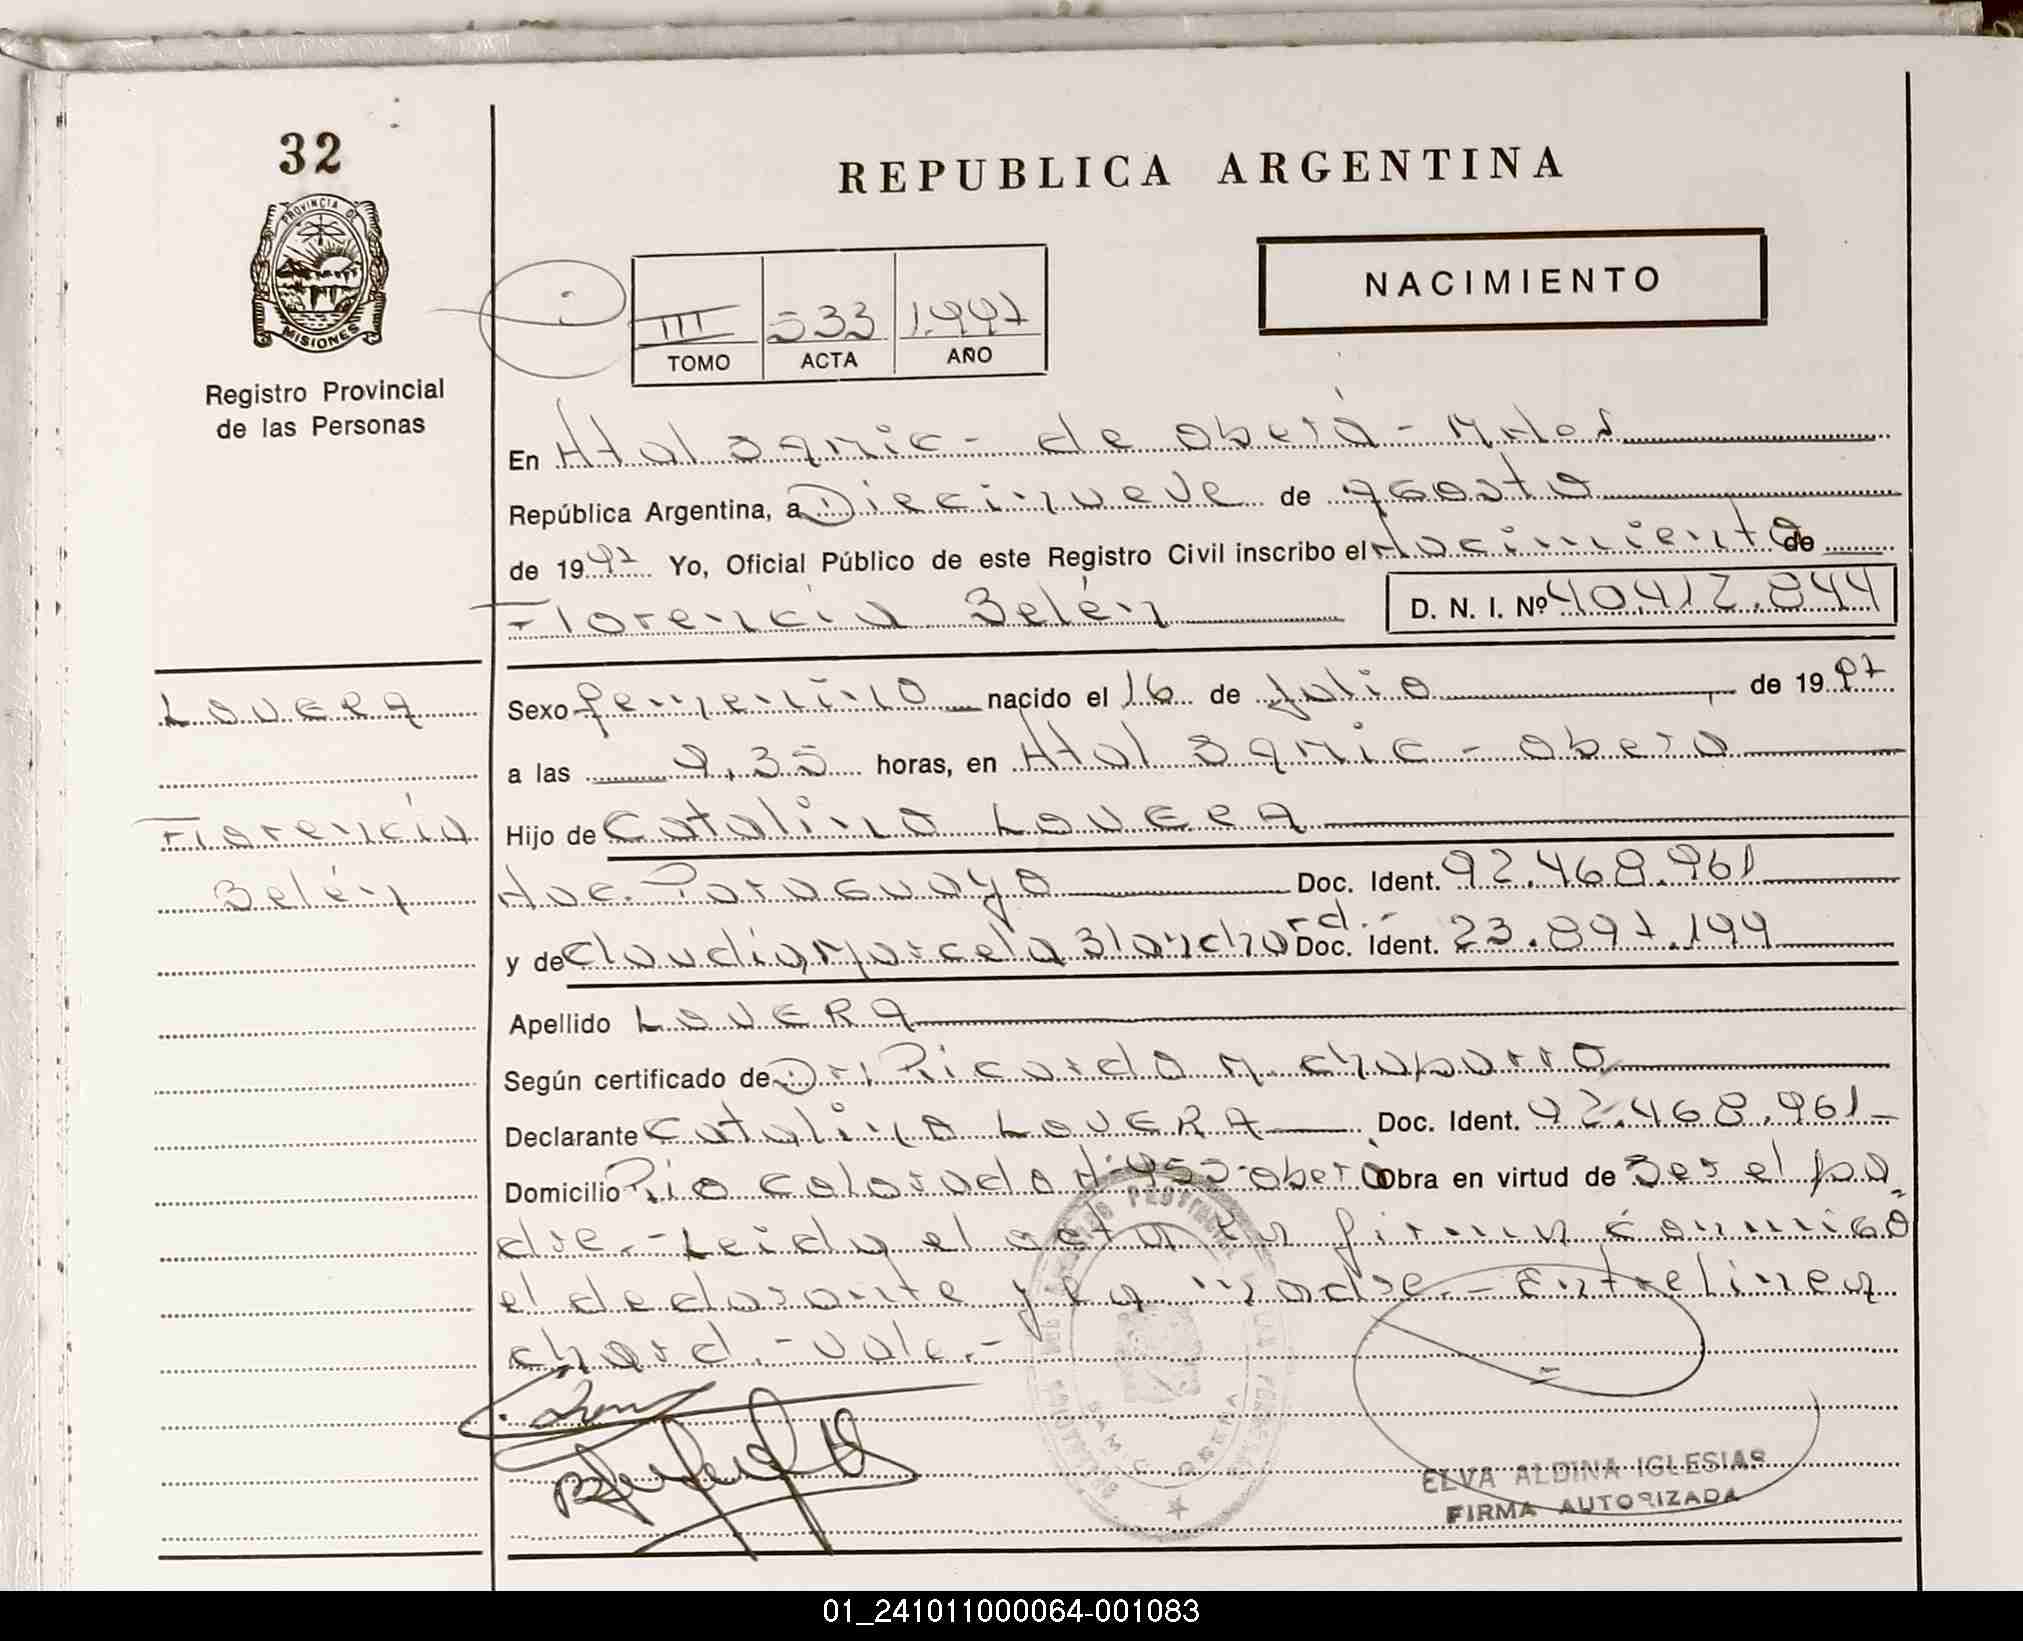 32
PROVINCIA DE
MISIONES
Registro Provincial
de las Personas
REPUBLICA ARGENTINA
NACIMIENTO
III 533 1.997
TOMO ACTA AÑO
En Htal Samic - de oberá - Mnes
República Argentina, a Diecinueve de agosto
de 1997 Yo, Oficial Público de este Registro Civil inscribo el Nacimiento de
Florencia Belén D. N. I. Nº 40.412.844
LOVERA
Florencia
Belén
Sexo femenino nacido el 16 de Julio de 1997
a las 9,35 horas, en Htal Samic - obera
Hijo de Catalino LOVERA
Nac. Paraguaya Doc. Ident. 92.468.961
rd.-
y de Claudia Marcela Blancha Doc. Ident. 23.897.199
Apellido LOVERA
Según certificado de Dr. Ricardo M. chaparro
Declarante Catalino LOVERA Doc. Ident. 92.468.961-
Domicilio Rio Colorado Nº 455-oberá Obra en virtud de Ser el pa
dre.- Leida el acta la firman conmigo
el declarante y la madre.- Entrelinea
chard.- vale.-
ELVA ALDINA IGLESIAS
FIRMA AUTORIZADA
01_241011000064-001083